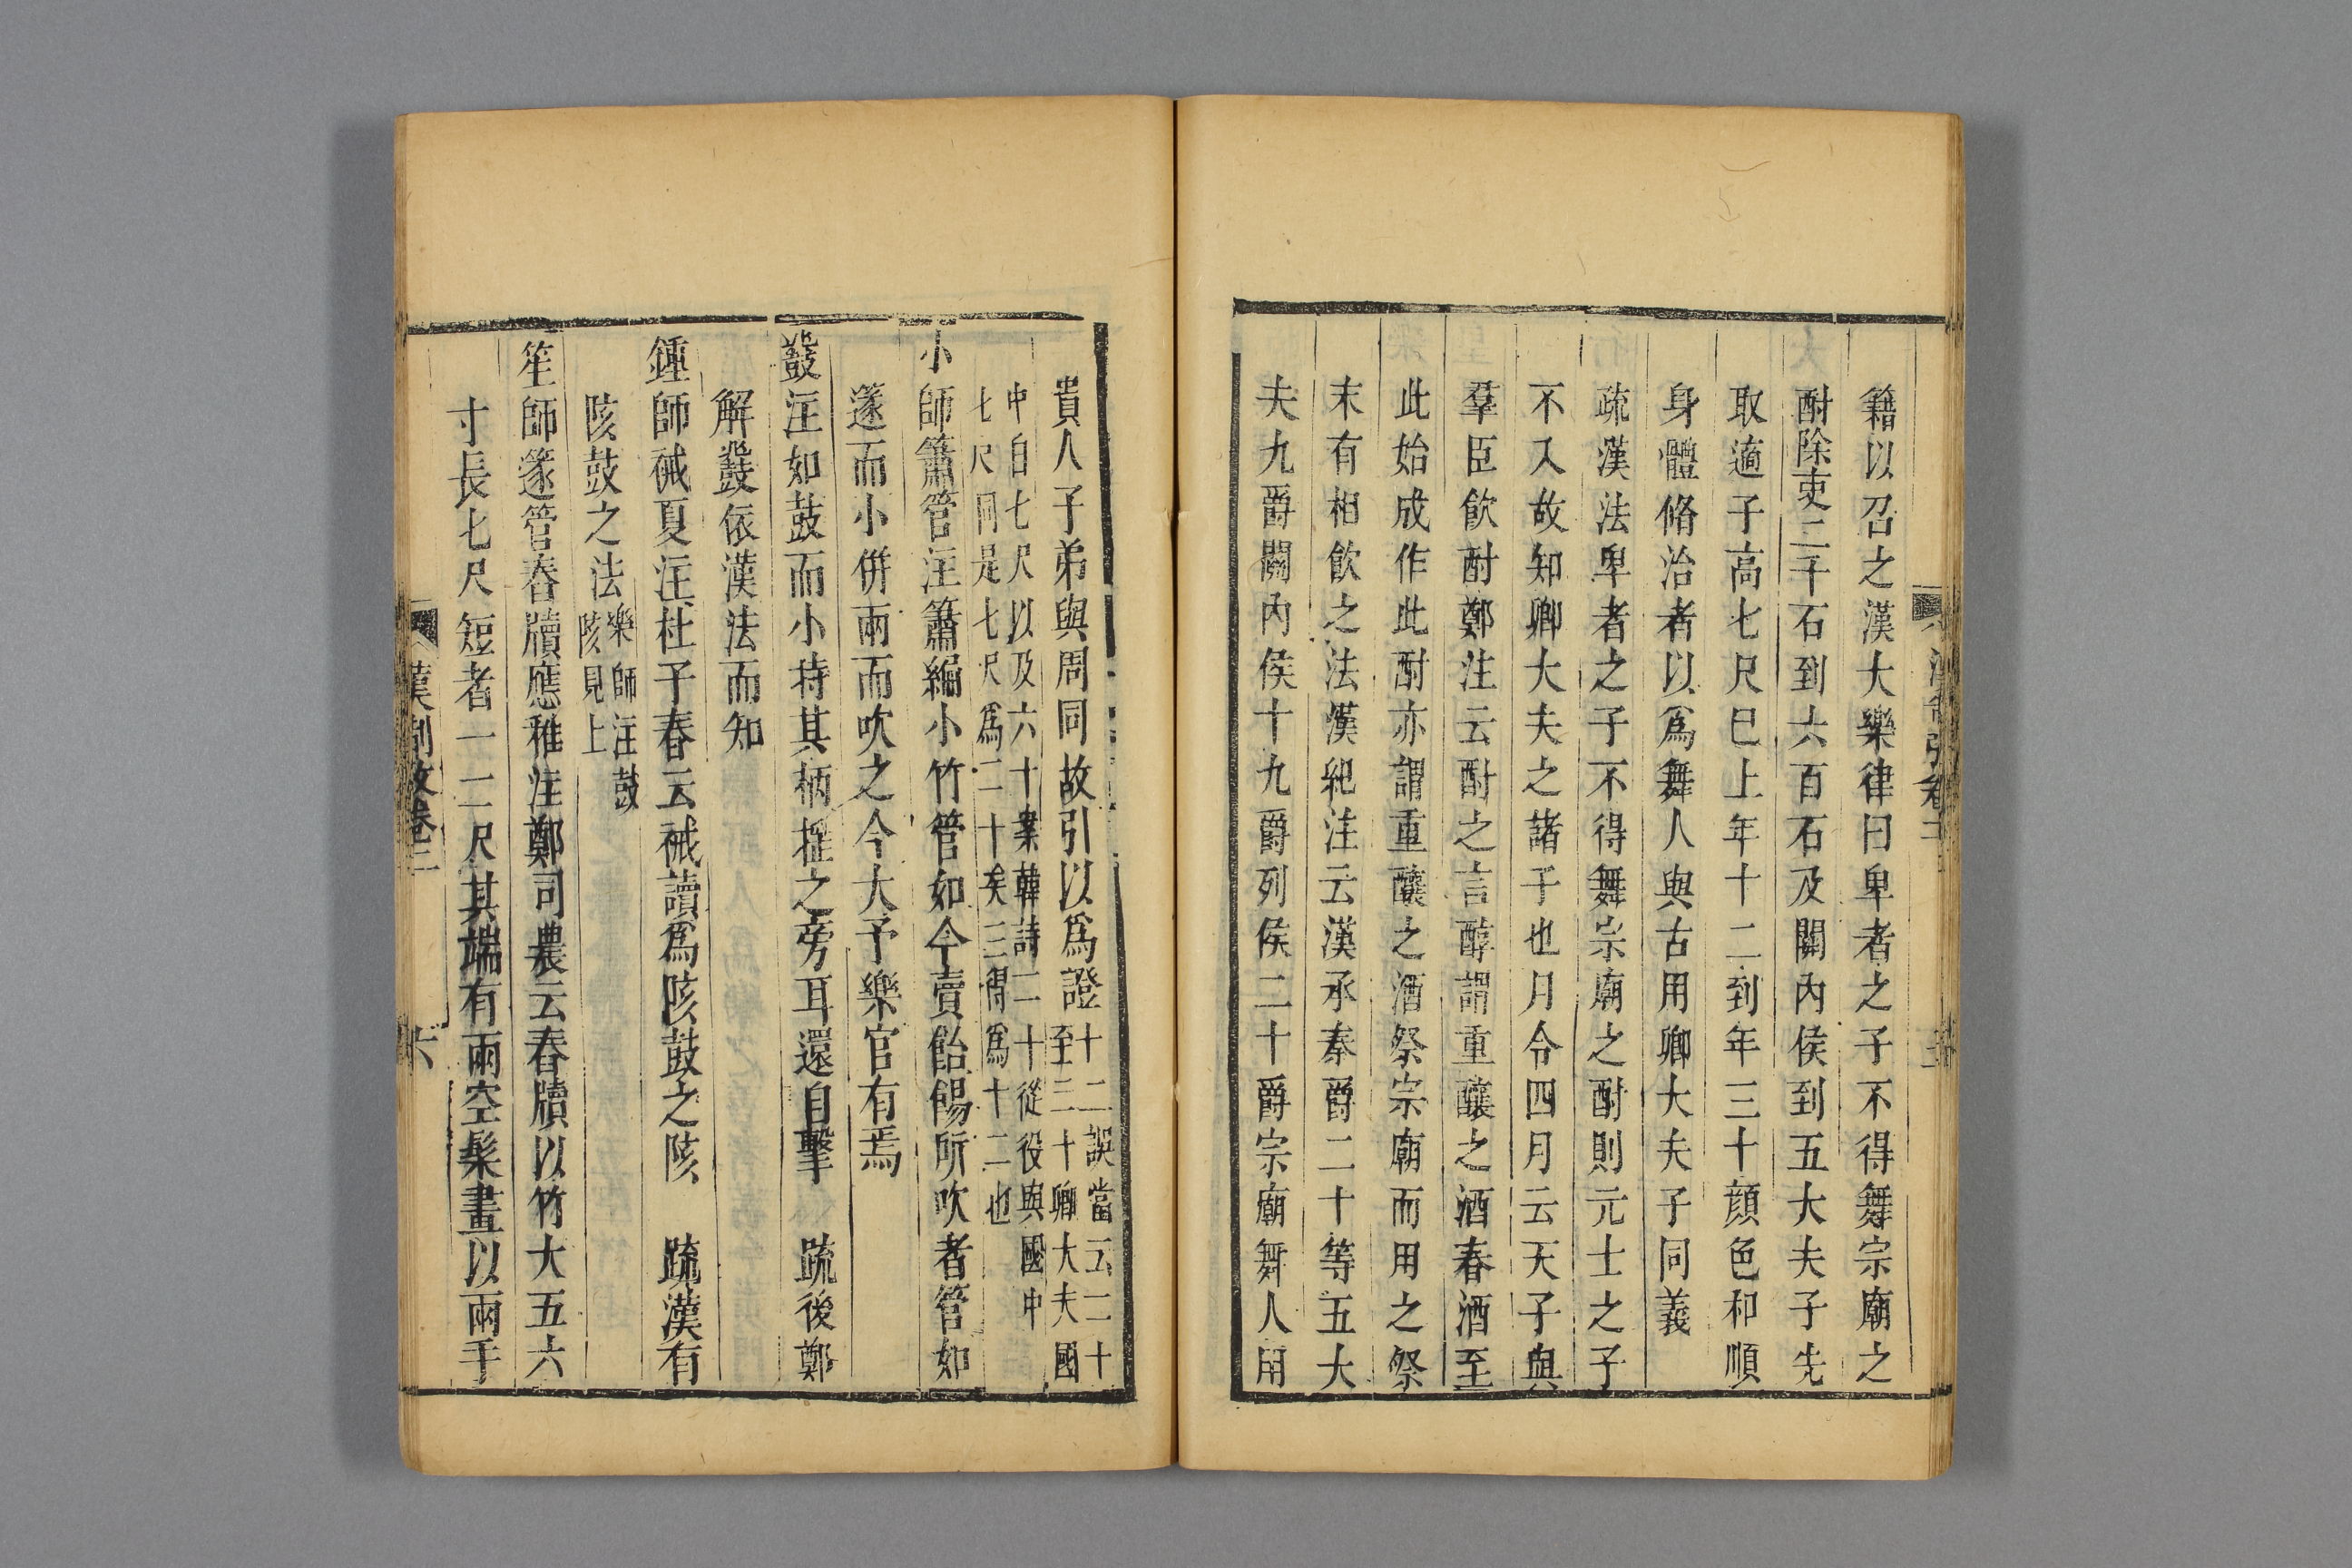 籍以召之漢大樂律曰卑者之子不得舞宗廟之
酎除吏二千石到六百石及關內侯到五大夫子先
取適子高七尺巳上年十二到年三十顔色和順
身體脩治者以爲舞人與古用卿大夫子同義
疏漢法卑者之子不得舞宗廟之酎則元士之子
不入故知卿大夫之諸子也月令四月云天子與
羣臣飲酎鄭注云酎之言醇謂重釀之酒春酒至
此始成作此酎亦謂重釀之酒祭宗廟而用之祭
末有相飲之法漢紀注云漢承秦爵二十等五大
夫九爵關內侯十九爵列侯二十爵宗廟舞人用
貴人子弟與周同故引以爲證十二誤當云二十
至三十卿大夫國
中自七尺以及六十案韓詩二十從役與國中
七尺同是七尺爲二十矣三得爲十二也
小師簫管注簫編小竹管如今賣飴餳所吹者管如
篴而小併兩而吹之今大予樂官有焉
鼗注如鼓而小持其柄搖之旁耳還自擊 疏後鄭
解鼗依漢法而知
鍾師祴夏注杜子春云祴讀爲陔鼓之陔 疏漢有
陔鼓之法樂師注鼓
陔見上
笙師篴管舂牘應雅注鄭司農云舂牘以竹大五六
寸長七尺短者一二尺其端有兩空髹畫以兩手
漢制攷卷二
六